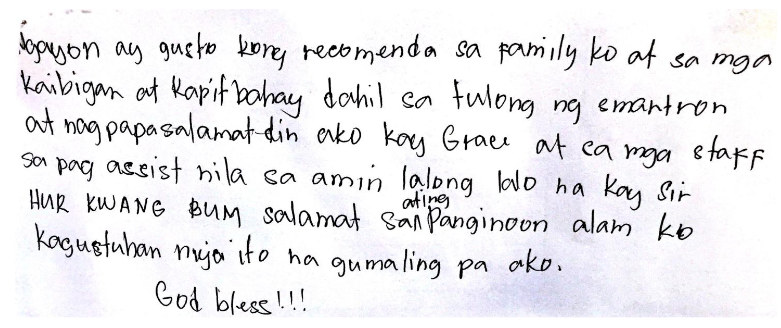 Ngayon ay gusto kong recomenda sa family ko at sa mga
kaibigan at kapitbahay dahil sa tulong ng smantron
at nagpapasalamat din ako kay Grace at sa mga staff
sa pag assist nila sa amin lalong lalo na kay Sir
HUR KWANG BUM salamat sa ating Panginoon alam ko
kagustuhan niya ito na gumaling pa ako.
God bless!!!